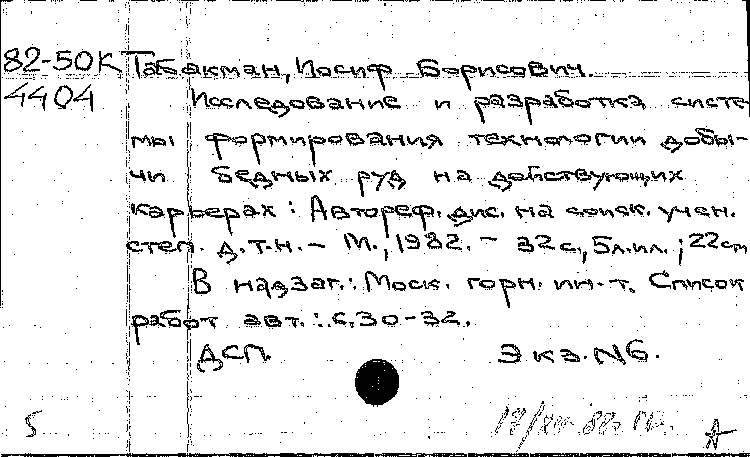 82-50К Табакман, Иосиф Борисович.
4404 Исследование и разработка систе
мы формирования технологии добы-
чи бедных руд на действующих
карьерах : Автореф. дис. на соиск. учен.
степ. д.т.н. – М., 1982. – 32 с., 5л.ил. ; 22см
В надзаг.: Моск. горн. ин-т. Список
работ авт.: с. 30-32.
ДСП. Экз. N6.
5